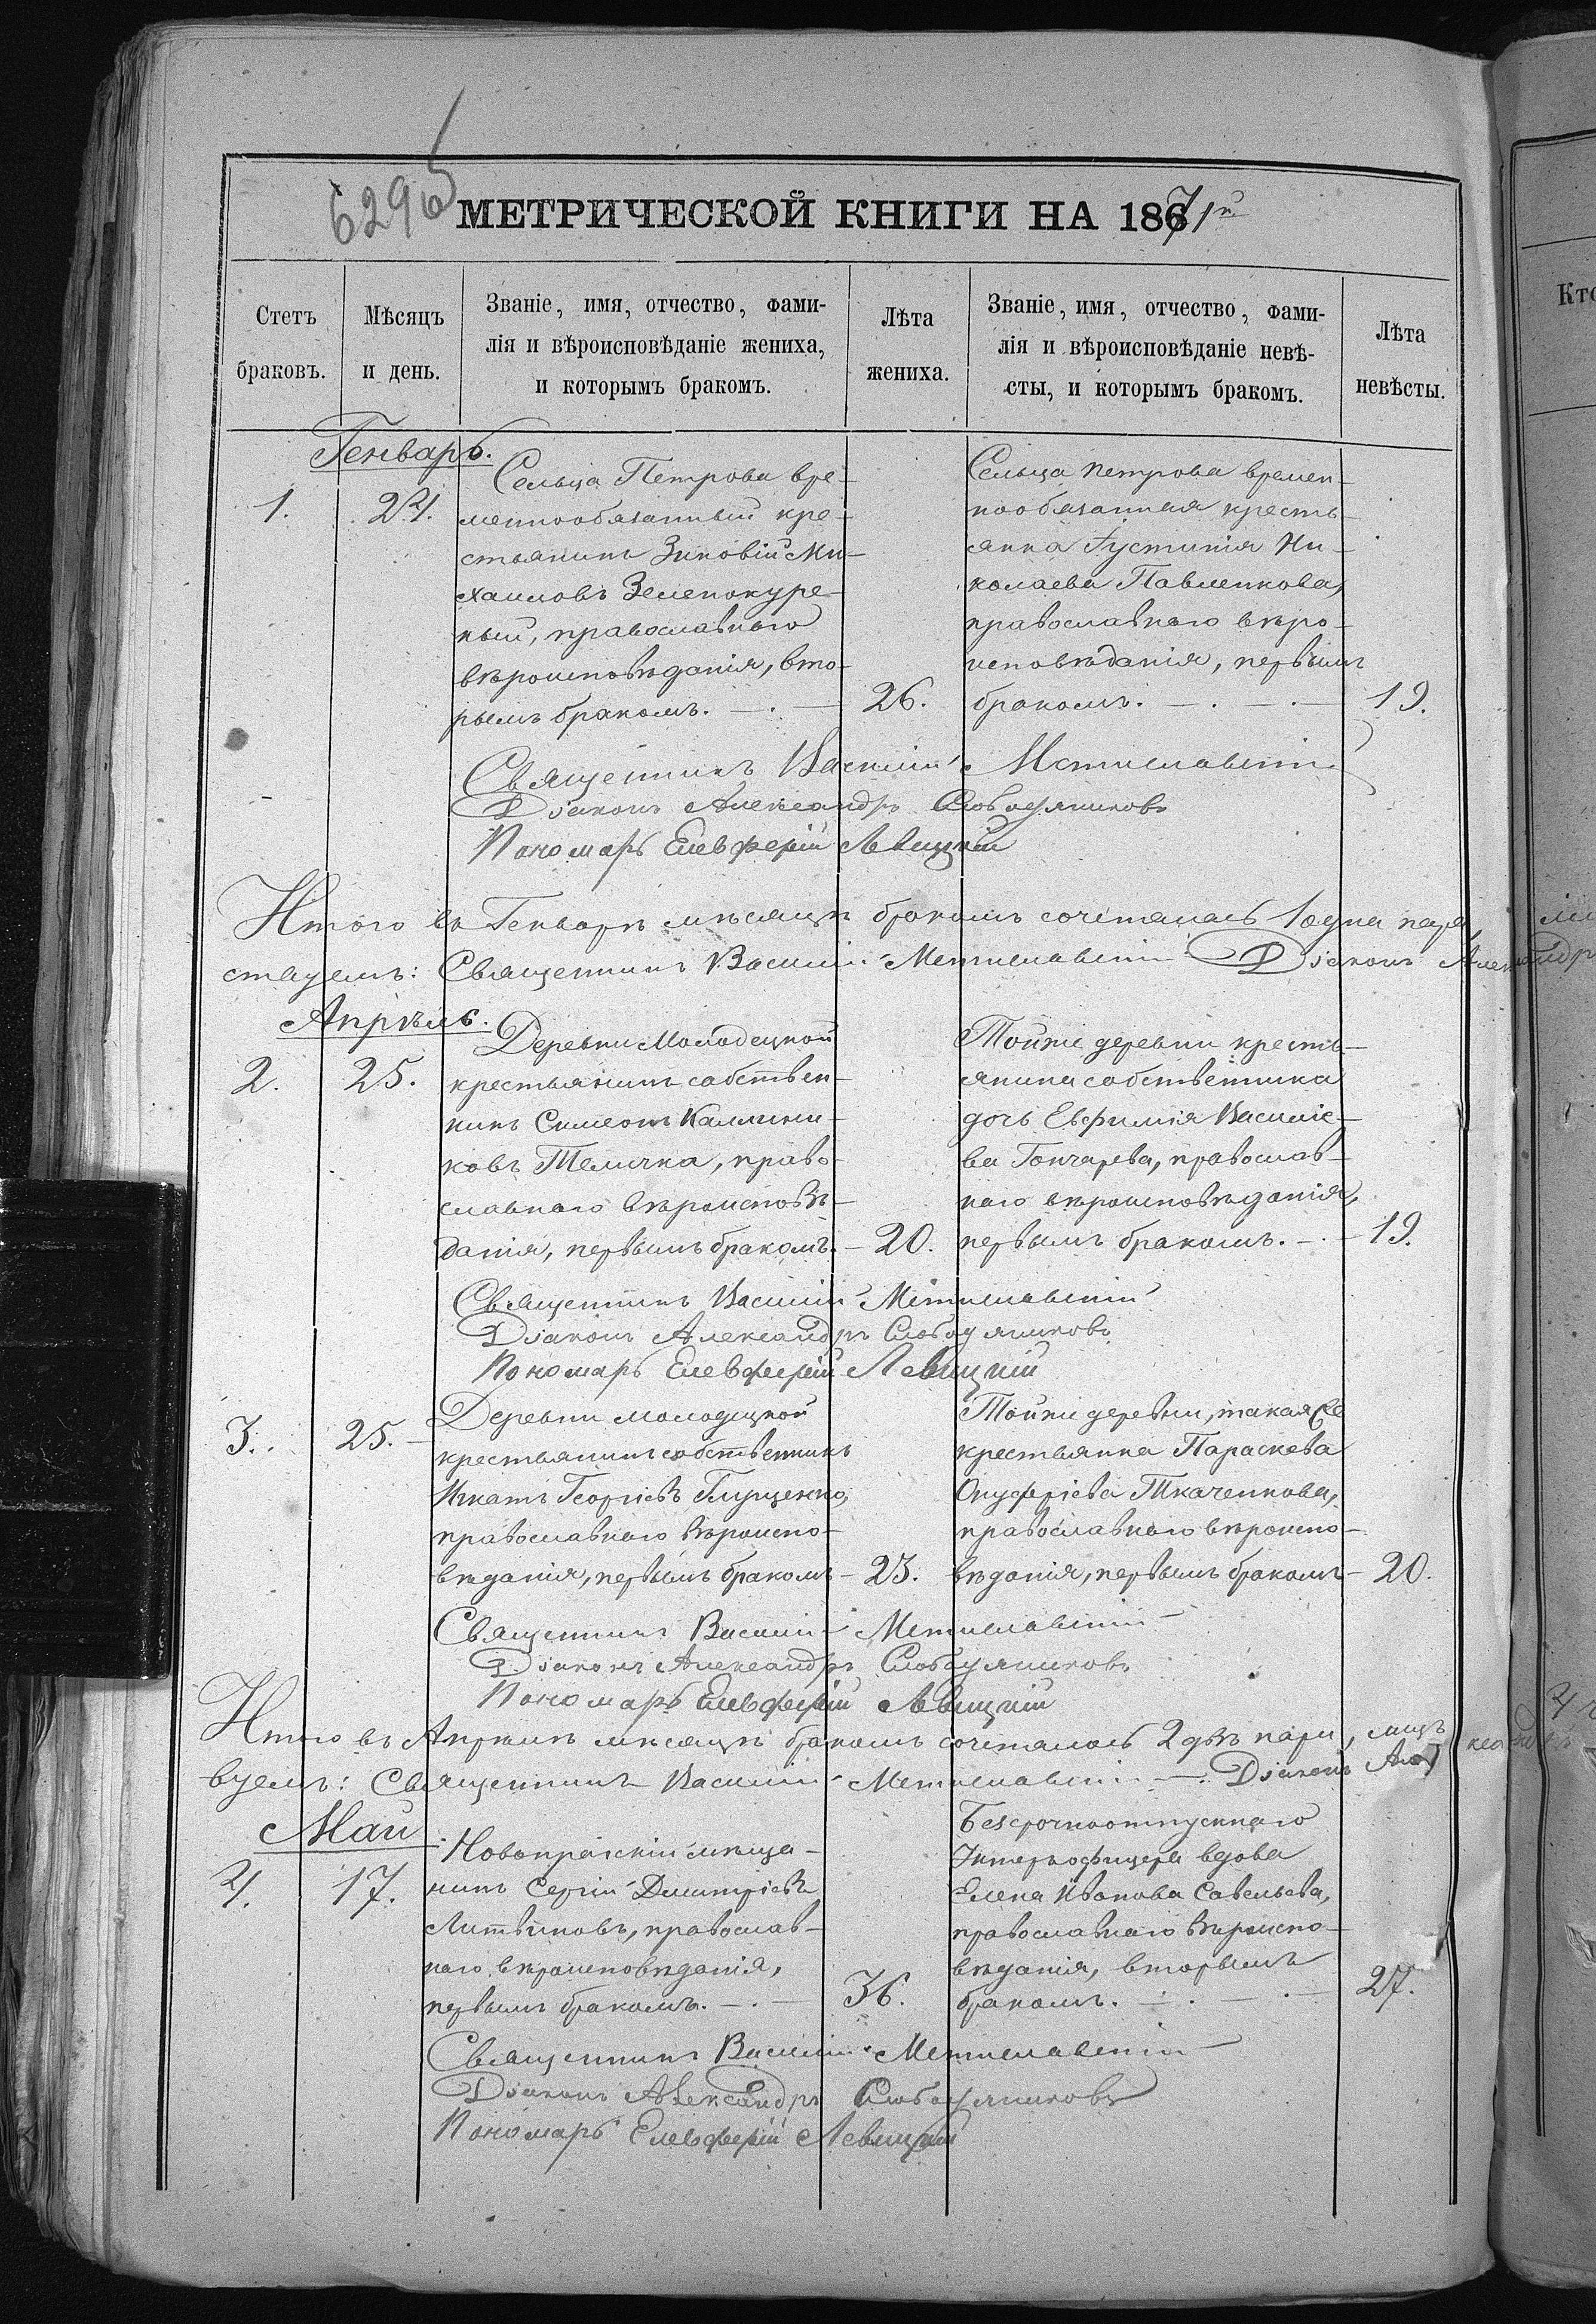 6296
МЕТРИЧЕСКОЙ КНИГИ НА 1871й
Счетъ браковъ.
Мѣсяцъ и день.
Званіе, имя, отчество, фами-
лія и вѣроисповѣданіе жениха,
и которымъ бракомъ.
Лѣта жениха.
Званіе, имя, отчество, фами-
лія и вѣроисповѣданіе невѣ-
сты, и которымъ бракомъ.
Лѣта невѣсты.
Кто
Генварь.
1.
24.
Сельца Петрова вре-
меннообязанный кре-
стьянинъ Зиновій Ми-
хаиловъ Зеленокуре-
ный, православнаго
вѣроисповѣданія, вто-
рымъ бракомъ.
26.
Сельца Петрова времен-
нообязанная кресть-
янка Іустинія Ни-
колаева Павленкова,
православнаго вѣро-
исповѣданія, первымъ
бракомъ.
19.
Священникъ Василій Мстиславскій
Діаконъ Александръ
Пономарь Елевферій Левицкій
Итого въ Генварѣ мѣсяцѣ бракомъ сочеталась 1 одна пара,
Священникъ Василій Мстиславскій Діаконъ Александръ
Апрѣль.
2.
25.
Деревни Молодецкой
крестьянинъ собствен-
никъ Симеонъ Каллини-
ковъ Теличка, право-
славнаго вѣроисповѣ-
данія, первымъ бракомъ.
20.
Тойже деревни кресть-
янина собственника
дочь Евфимія Василіе-
ва Гончарева, православ-
наго вѣроисповѣданія,
первымъ бракомъ.
19.
Священникъ Василій Мстиславскій
Діаконъ Александръ
Пономарь Елевферій Левицкій
3.
25.
Деревни Молодецкой
крестьянинъ собственникъ
Игнатъ Георгіевъ Глущенко,
православнаго вѣроиспо-
вѣданія, первымъ бракомъ
23.
Тойже деревни, такаяже
крестьянка Параскева
Онуфріева Ткаченкова,
православнаго вѣроиспо-
вѣданія, первымъ бракомъ
20.
Священникъ Василій Мстиславскій
Діаконъ Александръ
Пономарь Елевферій Левицкій
Итого въ Апрѣлѣ мѣсяцѣ бракомъ сочеталось 2 двѣ пары,
вуемъ: Священникъ Василій Мстиславскій Діаконъ
Май
4.
17.
Новопражскій мѣща-
нинъ Сергій Димитріевъ
Литвиновъ, православ-
наго вѣроисповѣданія,
первымъ бракомъ.
36.
Безсрочноотпускнаго
Унтерофицера вдова
Елена Иванова Савельева,
православнаго вѣроиспо-
вѣданія, вторымъ
бракомъ.
27.
Священникъ Василій Мстиславскій
Діаконъ Александръ
Пономарь Елевферій Левицкій